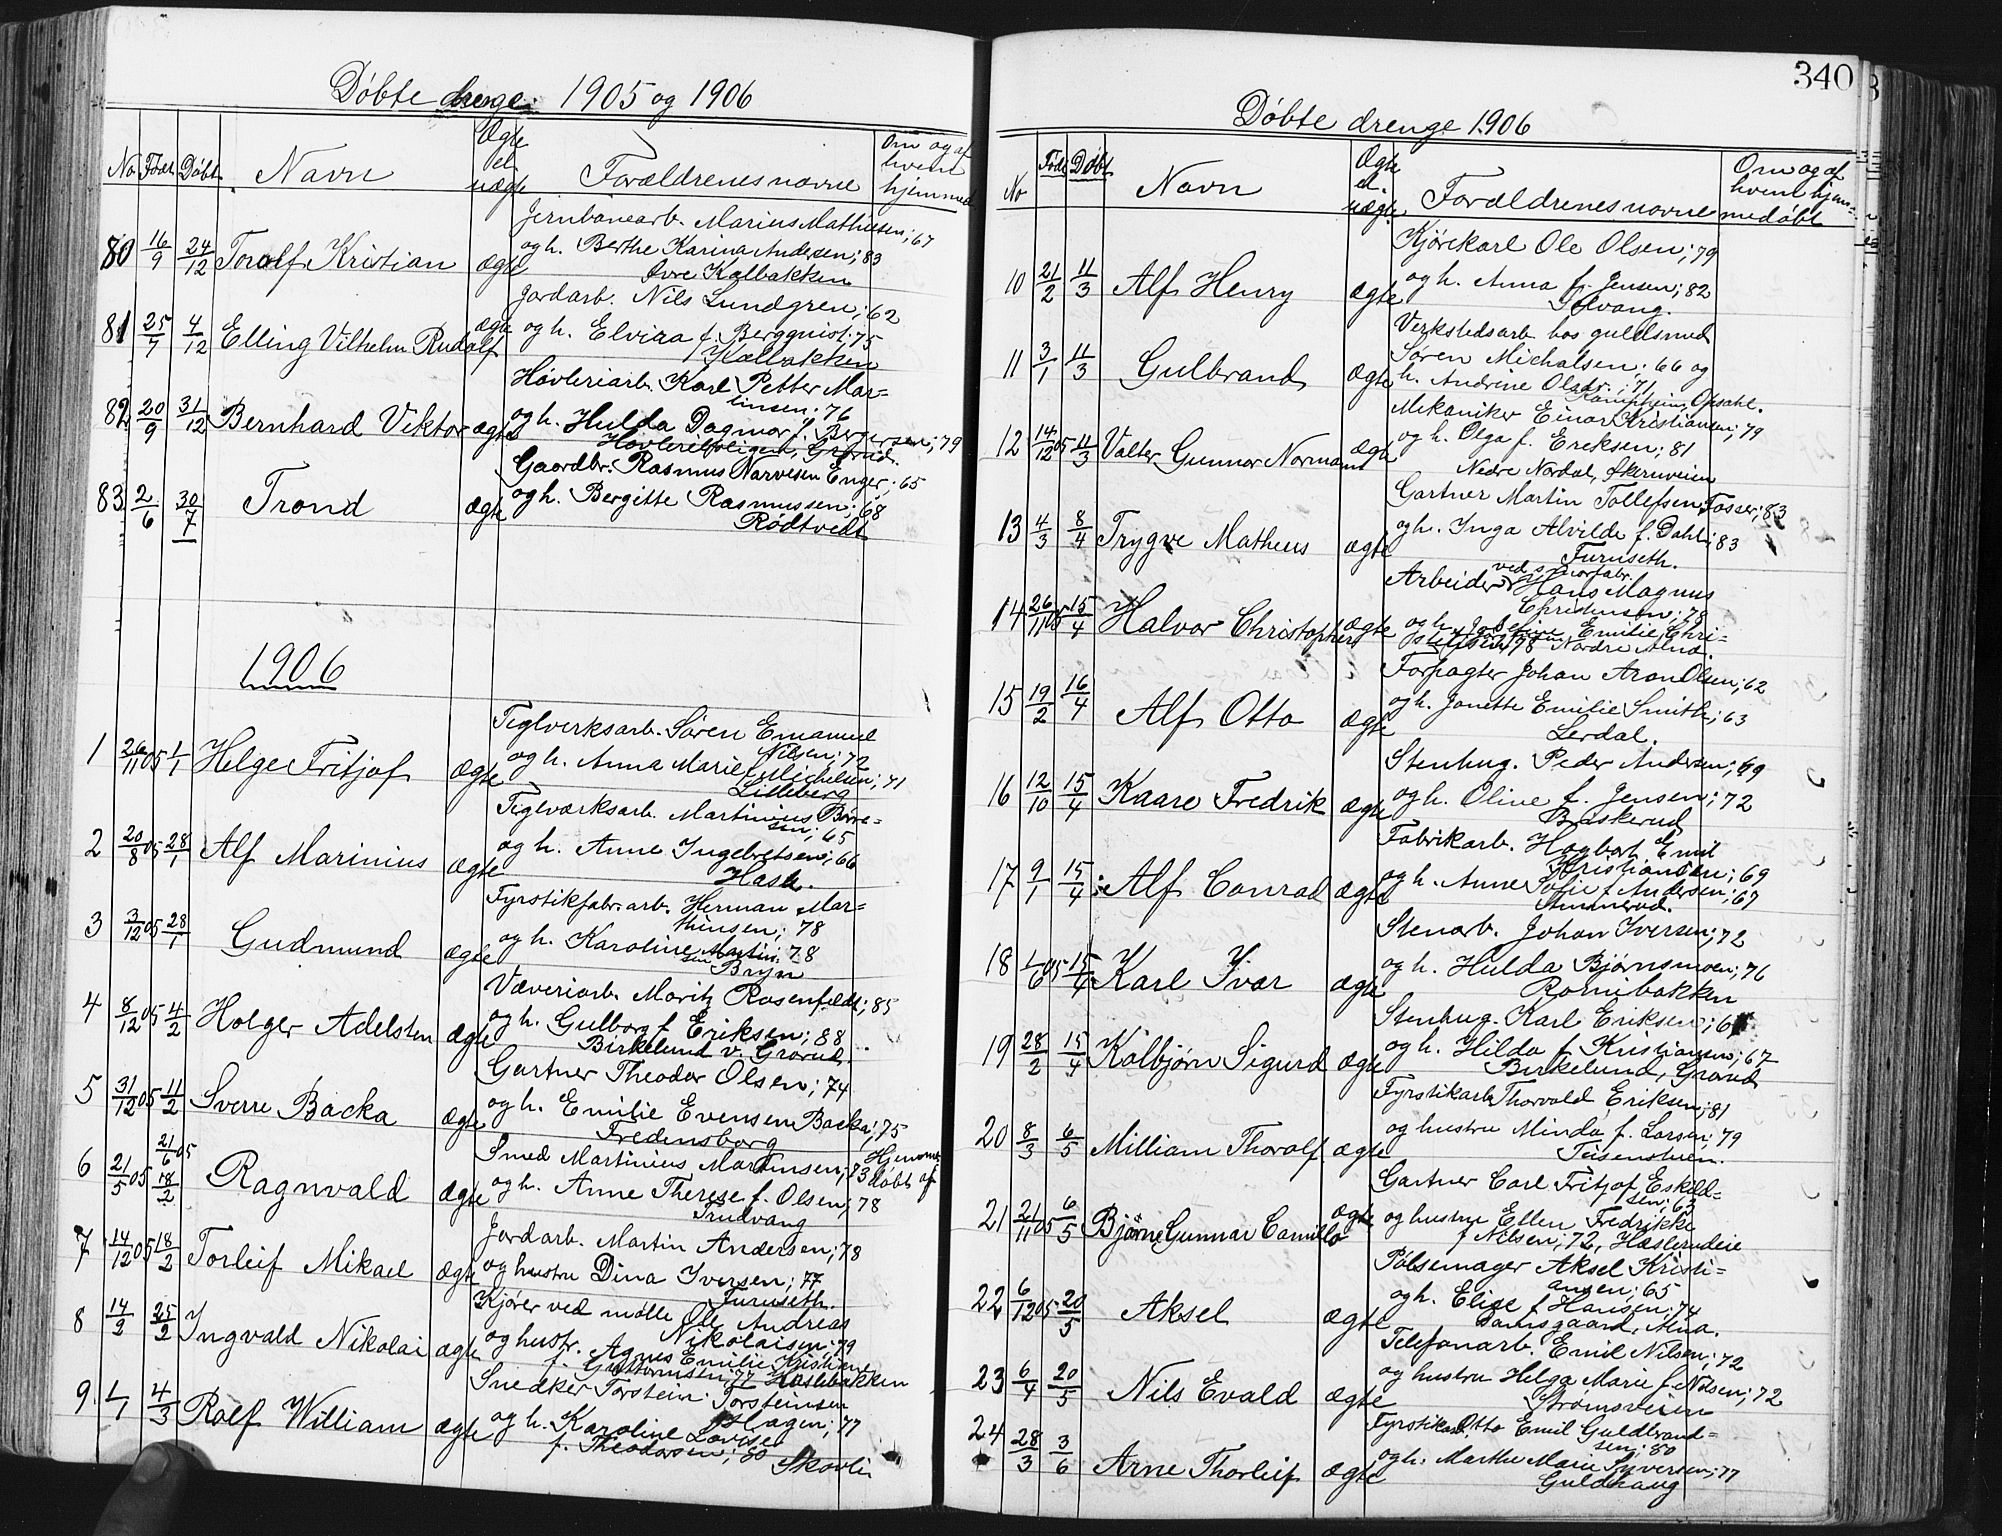 Døbte drenge 1905 og 1906
No Født Døbt Navn Ægte el uægte Forældrenes navne Om og af hvem hjemmed
80 16/9 24/12 Toralf Kristian ægte Jernbanearb. Marius Mathiesen; 67
og h. Berthe Karina Andersen; 83
Øvre Kalbakken
81 25/7 4/12 Elling Vilhelm Rudolf ægte Jordarb. Nils Lundgren; 62
og h. Elvira f. Bergquist; 75
Kalbakken
82 20/9 31/12 Bernhard Viktor ægte Høvleriarb. Karl Petter Mar-
tinsen; 76
og h. Hulda Dagmar f. Bergersen; 79
Høvleriboligen, Grorud.
83 2/6 30/7 Trond ægte Gaardbr. Rasmus Narvesen Enger; 65
og h. Bergitte Rasmussen; 68
Rødtvedt
1906
1 26/11 05 1/1 Helge Fritjof ægte Teglverksarb. Søren Emanuel
Nilsen; 72
og h. Anna Marie f. Michelsen; 71
Lilleberg
2 20/8 05 28/1 Alf Marinius ægte Teglværksarb. Martinius Børre-
sen; 65
og h. Anne Ingebretsen; 66
Hasle.
3 3/12 05 28/1 Gudmund ægte Fyrstikfabr.arb. Herman Mar-
thinsen; 78
og h. Karoline Martin
sen; 78
Bryn
4 8/12 05 4/2 Holger Adelsten ægte Væveriarb. Moritz Rosenfeldt; 85
og h. Gulborg f. Eriksen; 88
Birkelund v. Grorud.
5 31/12 05 11/2 Sverre Backa ægte Gartner Theodor Olsen; 74
og h. Emilie Evensen Backa; 75
Fredensborg
6 21/5 05 21/6 05 18/2 Ragnvald ægte Smed Martinius Martinsen; 83 Hjemme-
døbt af
og h. Anne Therese f. Olsen; 78
Trudvang
7 14/12 05 18/2 Torleif Mikael ægte Jordarb. Martin Andersen; 78
og hustru Dina Iversen; 77
Furuseth.
8 14/2 25/2 Ingvald Nikolai ægte Kjører ved mølle Ole Andreas
Nikolaisen; 79
og hustr. Agnes Emilie Kristiane
f. Guttormsen; 77 Haslebakken
9 1/1 4/3 Rolf William ægte Snedker Torstein Torsteinsen
Hagen; 77
og h. Karoline Lovise
f. Theodorsen; 80 Skovli
340
Døbte drenge 1906
No Født Døbt Navn Ægte el. uægte Forældrenes navne Om og af hvem hjem-
medøbt
10 21/2 11/3 Alf Henry ægte Kjørekarl Ole Olsen; 79
og h. Anna f. Jensen; 82
Solvang.
11 3/1 11/3 Gulbrand ægte Verkstedsarb hos guldsmed
Søren Michalsen; 66 og
h. Andrine Olsdr.; 71
Kampheim, Opsahl.
12 14/12 05 11/3 Valter Gunnar Normann ægte Mekaniker Einar Kristiansen; 79
og h. Olga f. Ereksen; 81
Nedre Nordal, Akernveien
13 4/3 8/4 Trygve Matheus ægte Gartner Martin Tollefsen Fosser; 83
og h. Inga Alvilde f. Dahl; 83
Furuseth.
14 26/11 05 15/4 Halvor Christopher ægte Arbeider ved
Hans Magnus
Christensen; 78
og h. Josefine Emilie Chri-
stensen; 78 Nordre Alna.
15 19/2 16/4 Alf Otto ægte Forpagter Johan Aron Olsen; 62
og h. Janette Emilie Smith; 63
Lerdal.
16 12/10 15/4 Kaare Fredrik ægte Stenhug. Peder Andersen; 69
og h. Oline f. Jensen; 72
Buskerud
17 9/1 15/4 Alf Conrad ægte Fabrikarb. Hagbart Emil
Kristiansen; 69
og h. Anne Sofie f. Andersen; 67
18 1/6 05 15/4 Karl Ivar ægte Stenarb. Johan Iversen; 72
og h. Hulda Bjørnsmoen; 76
Rognebakken
19 28/2 15/4 Kolbjørn Sigurd ægte Stenhug. Karl Eriksen; 6
og h. Hilda f. Kristiansen; 67
Birkelund, Grorud
20 8/3 6/5 William Thoralf ægte Fyrstikarb. Thorvald Eriksen; 81
og hustru Minda f. Larsen; 79
Teisenstuen.
21 21/11 05 6/5 Bjørne Gunnar Camillo ægte Gartner Carl Fritjof Eskild-
sen; 63
og hustru Ellen Fredrikke
f. Nilsen; 72, Haslerudeie
22 6/12 05 20/5 Aksel ægte Pølsemager Aksel Kristi-
ansen; 65
og h. Elise f. Hansen; 74
Damsgaard, Alna.
23 6/4 20/5 Nils Evald ægte Telefonarb. Emil Nilsen; 72
og hustru Helga Marie f. Nilsen; 72
Strømsveien
24 28/3 3/6 Arne Thorleif ægte Fyrstikarb. Otto Emil Guldbrand-
sen; 80
og h. Marthe Marie Syversen; 77
Guldhaug